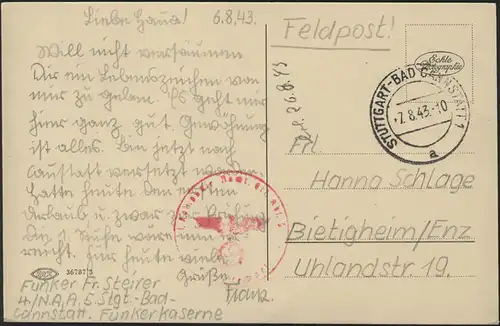 Liebe Hanna! 6.8.43.
Will nicht versäumen
Dir ein Lebenszeichen von
mir zu geben. Es geht mir
hier ganz gut. Gewöhnung
ist alles. Bin jetzt nach
Canstatt versetzt worden.
Hatte heute den ersten
Urlaub u. zwar
Die 1 Stufe wäre nun
recht. Für heute viele
Grüße
Franz.
36787/3
Funker Fr. Steirer
4./N.A.A. 5 Stgt.-Bad-
Cannstatt. Funkerkaserne
Feldpost!
Echte
Photographie
STUTTGART-BAD CANNSTATT 1
-7.8.43.-10
a
26.8.43
Frl.
Hanna Schlage
Bietigheim/Enz
Uhlandstr. 19.